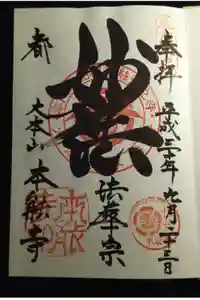 奉拝
平成三十年九月二十三日
妙法
法華宗
都
大本山 本能寺